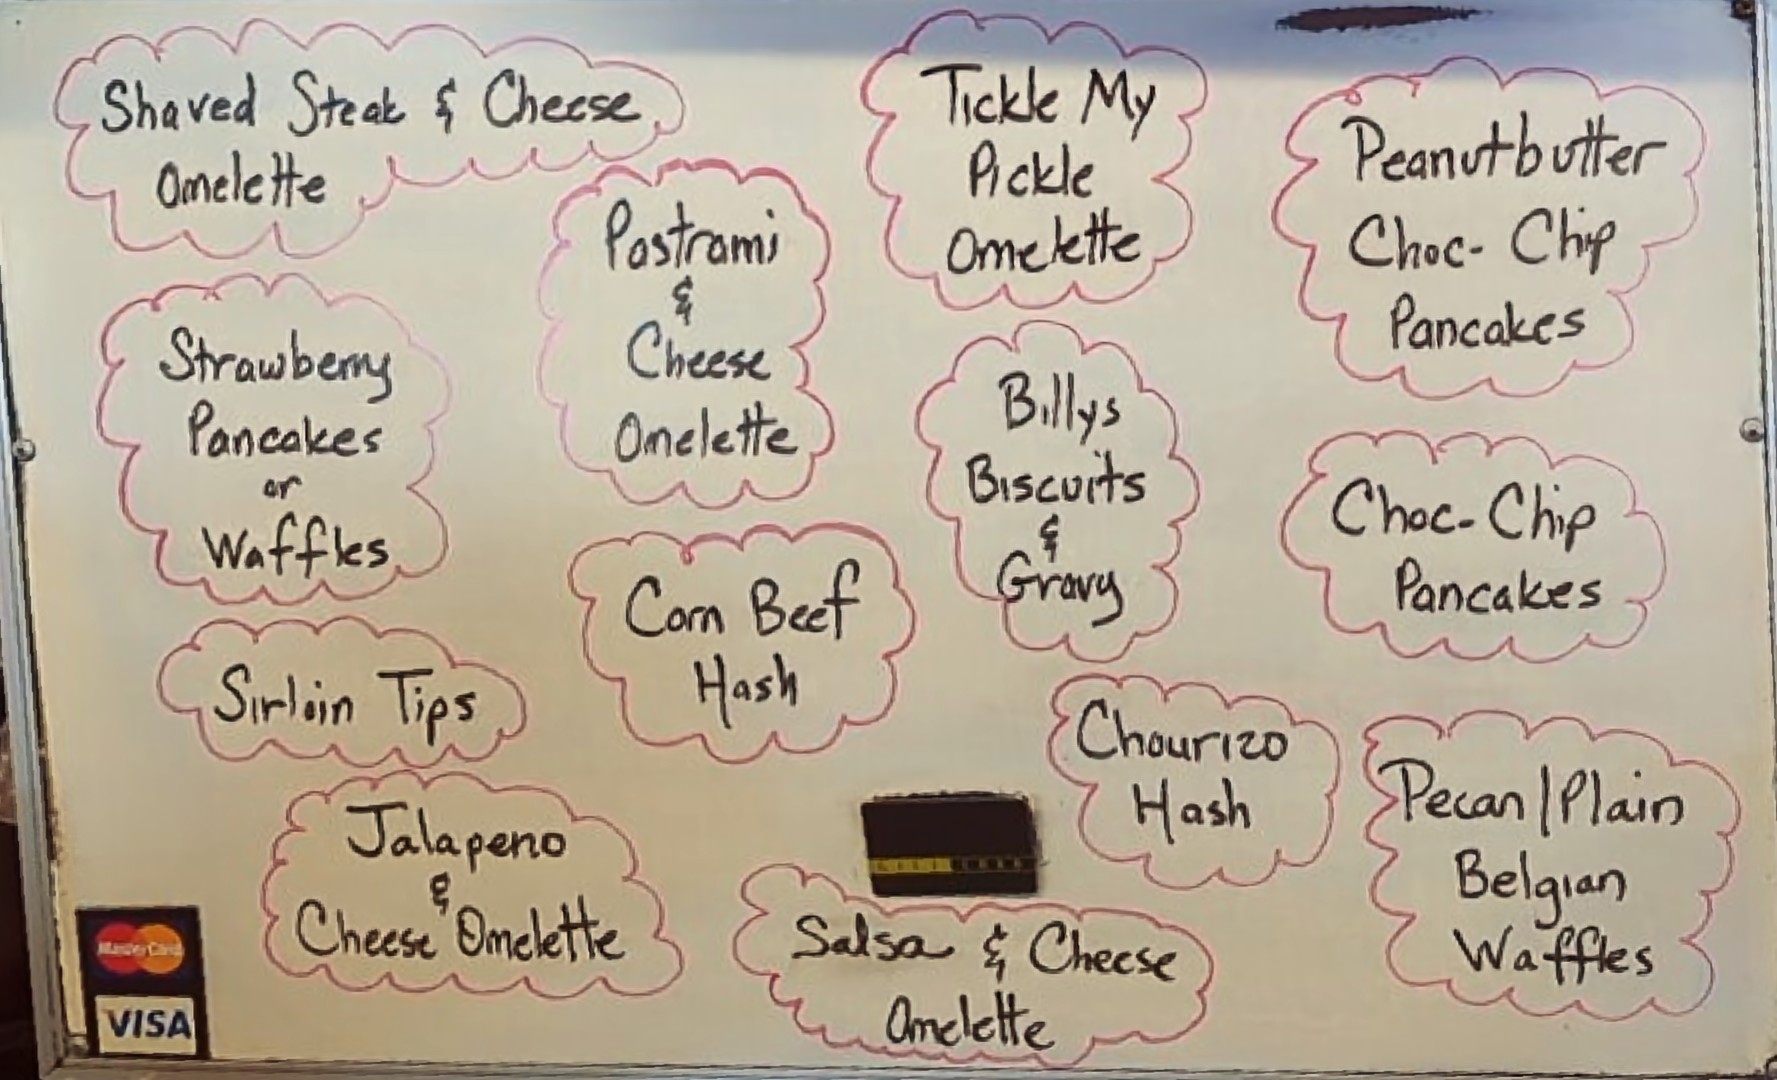 Shaved Steak & Cheese
Omelette
Tickle My
Pickle
Omelette
Peanutbutter
Choc- Chip
Pancakes
Pastrami
&
Cheese
Omelette
Strawberry
Pancakes
or
Waffles
Billys
Biscuits
&
Gravy
Choc- Chip
Pancakes
Corn Beef
Hash
Sirloin Tips
Chourizo
Hash
Pecan/Plain
Belgian
Waffles
Jalapeno
&
Cheese Omelette
Salsa & Cheese
Omelette
MasterCard
VISA